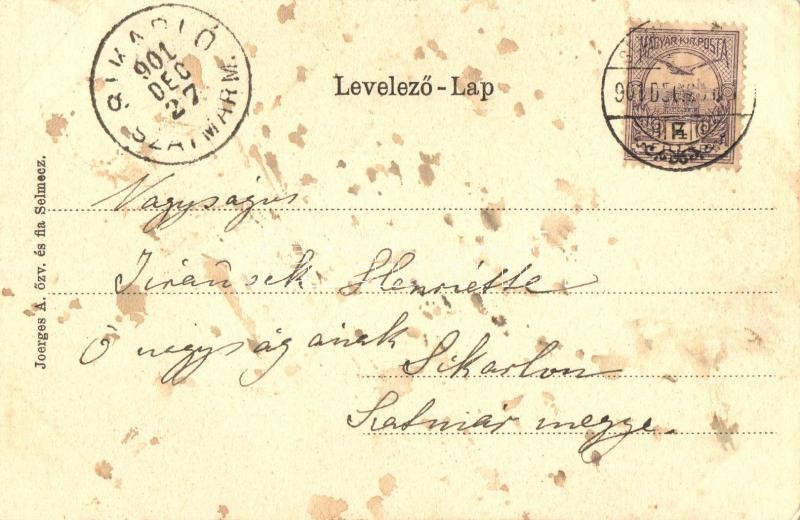 SIKARLÓ
901
DEC
27
SZATMÁRM.
Levelező-Lap
MAGYAR KIR. POSTA
901 DEC
Nagyságos
Henriette
Ő nagyságának
Sikarlon
Szatmár megye.
Joerges A. özv. és fia Selmecz.